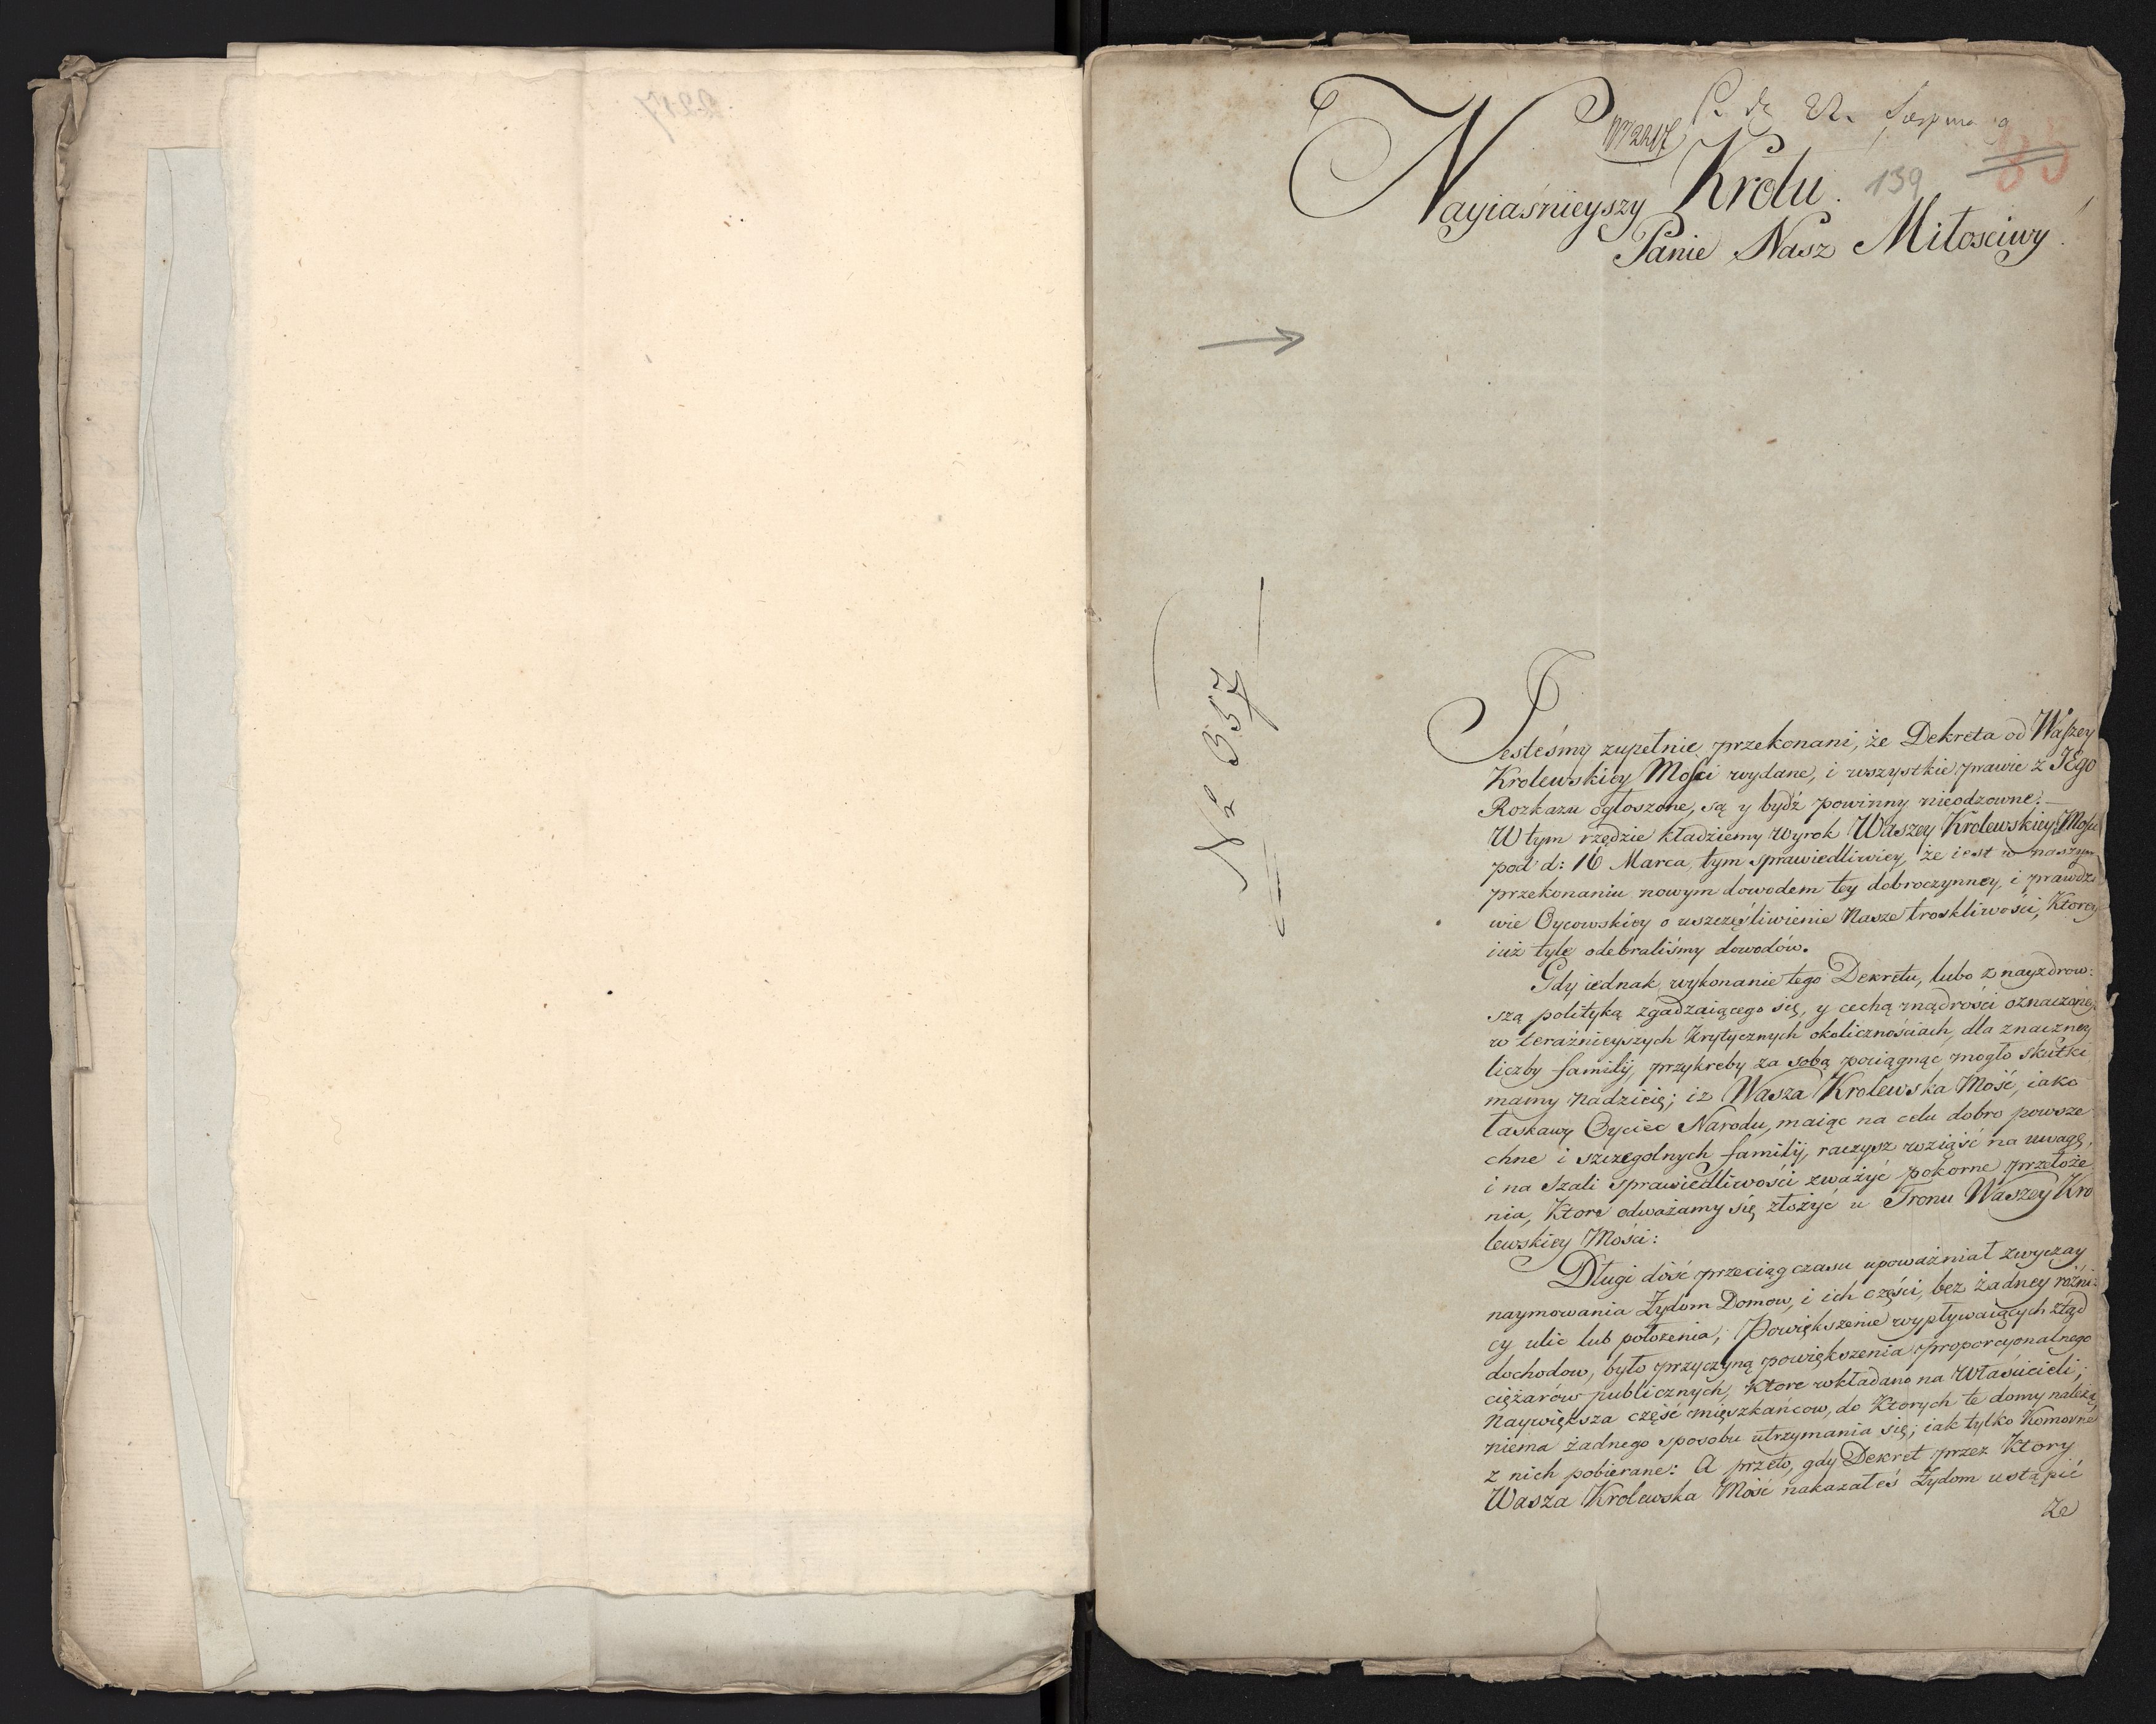 139
83
Nayiaśnieyszy Krolu.
Panie Nasz Miłosciwy!
№ 357
Jesteśmy zupełnie przekonani, że Dekreta od Waszey
Krolewskiey Mości wydane, i wszystkie prawie z JEgo
Rozkazu ogłoszone, są y bydź powinny nieodzowne. —
W tym rzędzie kładziemy Wyrok Waszey Krolewskiey Mości
pod d: 16 Marca, tym sprawiedliwiey, że iest w naszym
przekonaniu nowym dowodem tey dobroczynney, i prawdzi
wie Oycowskiey o uszczęśliwienie Nasze troskliwości, Ktorey
iuż tyle odebraliśmy dowodów.
Gdy iednak wykonanie tego Dekretu, lubo z nayzdrow:
szą polityką zgadzaiącego się, y cechą mądrości oznaczone,
w teraźnieyszych Krytycznych okolicznościach, dla znaczney
liczby familij, przykreby za sobą pociągnąć mogło skutki
mamy nadzieię; iż Wasza Krolewska Mość, iako
łaskawy Oyciec Narodu, maiąc na celu dobro powsze
chne i szczegolnych familij, raczysz wziąść na uwagę,
i na Szali sprawiedliwości zważyć pokorne przełoże
nia, Ktore odważamy się złożyć u Tronu Waszey Kro
lewskiey Mości:
Długi dość przeciąg czasu upoważniał zwyczay
naymowania Żydom Domow, i ich części, bez żadney różni:
cy ulic lub położenia; Powiększenie wypływaiących ztąd
dochodow, było przyczyną powiększenia proporcyonalnego
ciężarów publicznych, Ktore wkładano na Właścicieli;
Naywiększa część mieszkańcow, do Ktorych te domy należą,
niema żadnego sposobu utrzymania się; iak tylko Komorne
z nich pobierane: A przeto, gdy Dekret przez Ktory
Wasza Krolewska Mość nakazałeś Żydom ustąpić
Ze